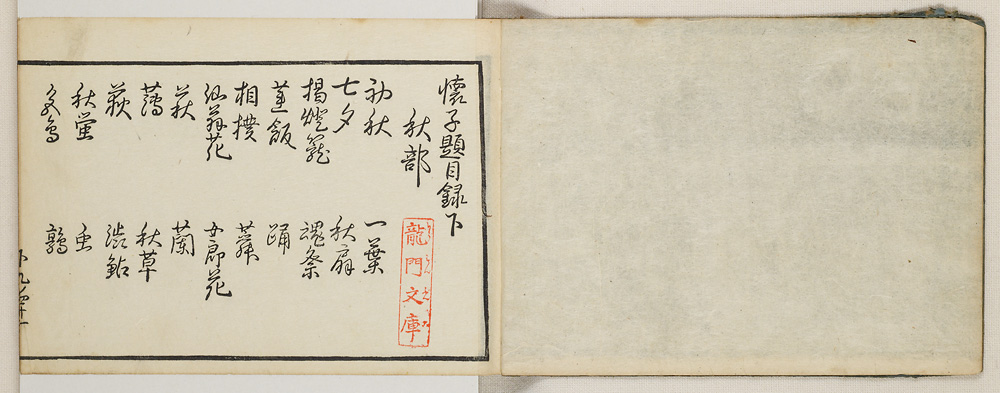 懐子題目録下
秋部
初秋 一葉
七夕 秋扇
掲燈籠 魂祭
蓮飯 踊
相撲 蕣
仙翁花 女郎花
萩 蘭
薄 秋草
荻 渋鮎
秋蛍 虫
色鳥 鶉
龍門文庫